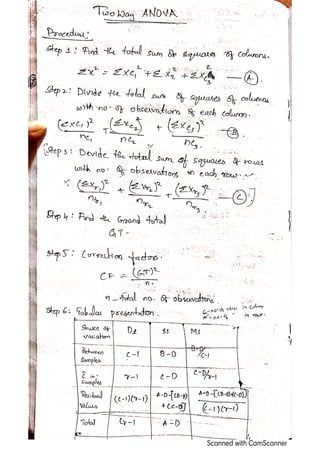 Two Way ANOVA
Procedure:
Step 1: Find the total sum of squares of columns.
Σx² = Σxc₁² + Σx₂² + Σxc₃² — (A).
Step 2: Divide the total sum of squares of columns
with no. of observations of each column.
(Σxc₁)²/nc₁ + (Σxc₂)²/nc₂ + (Σxc₃)²/nc₃ — (B).
[Step 3: Devide the total sum of squares of rows
with no. of observations in each row
(Σxr₁)²/nr₁ + (Σxr₂)²/nr₂ + (Σxr₃)²/nr₃ — (C).]
Step 4: Find the Grand total
GT-
Step 5: Correction factor.
CF = (GT)²/n.
n – total no. of observations.
Step 6: Tabular presentation.
Source of variation Df SS MS
Between Samples c-1 B-D B-D/c-1
Σ in Samples r-1 C-D C-D/r-1
Residual Values (c-1)(r-1) A-D-[(B-D)+(C-D)] A-D-[(B-D)+(C-D)]/(c-1)(r-1)
Total cr-1 A-D
Scanned with CamScanner